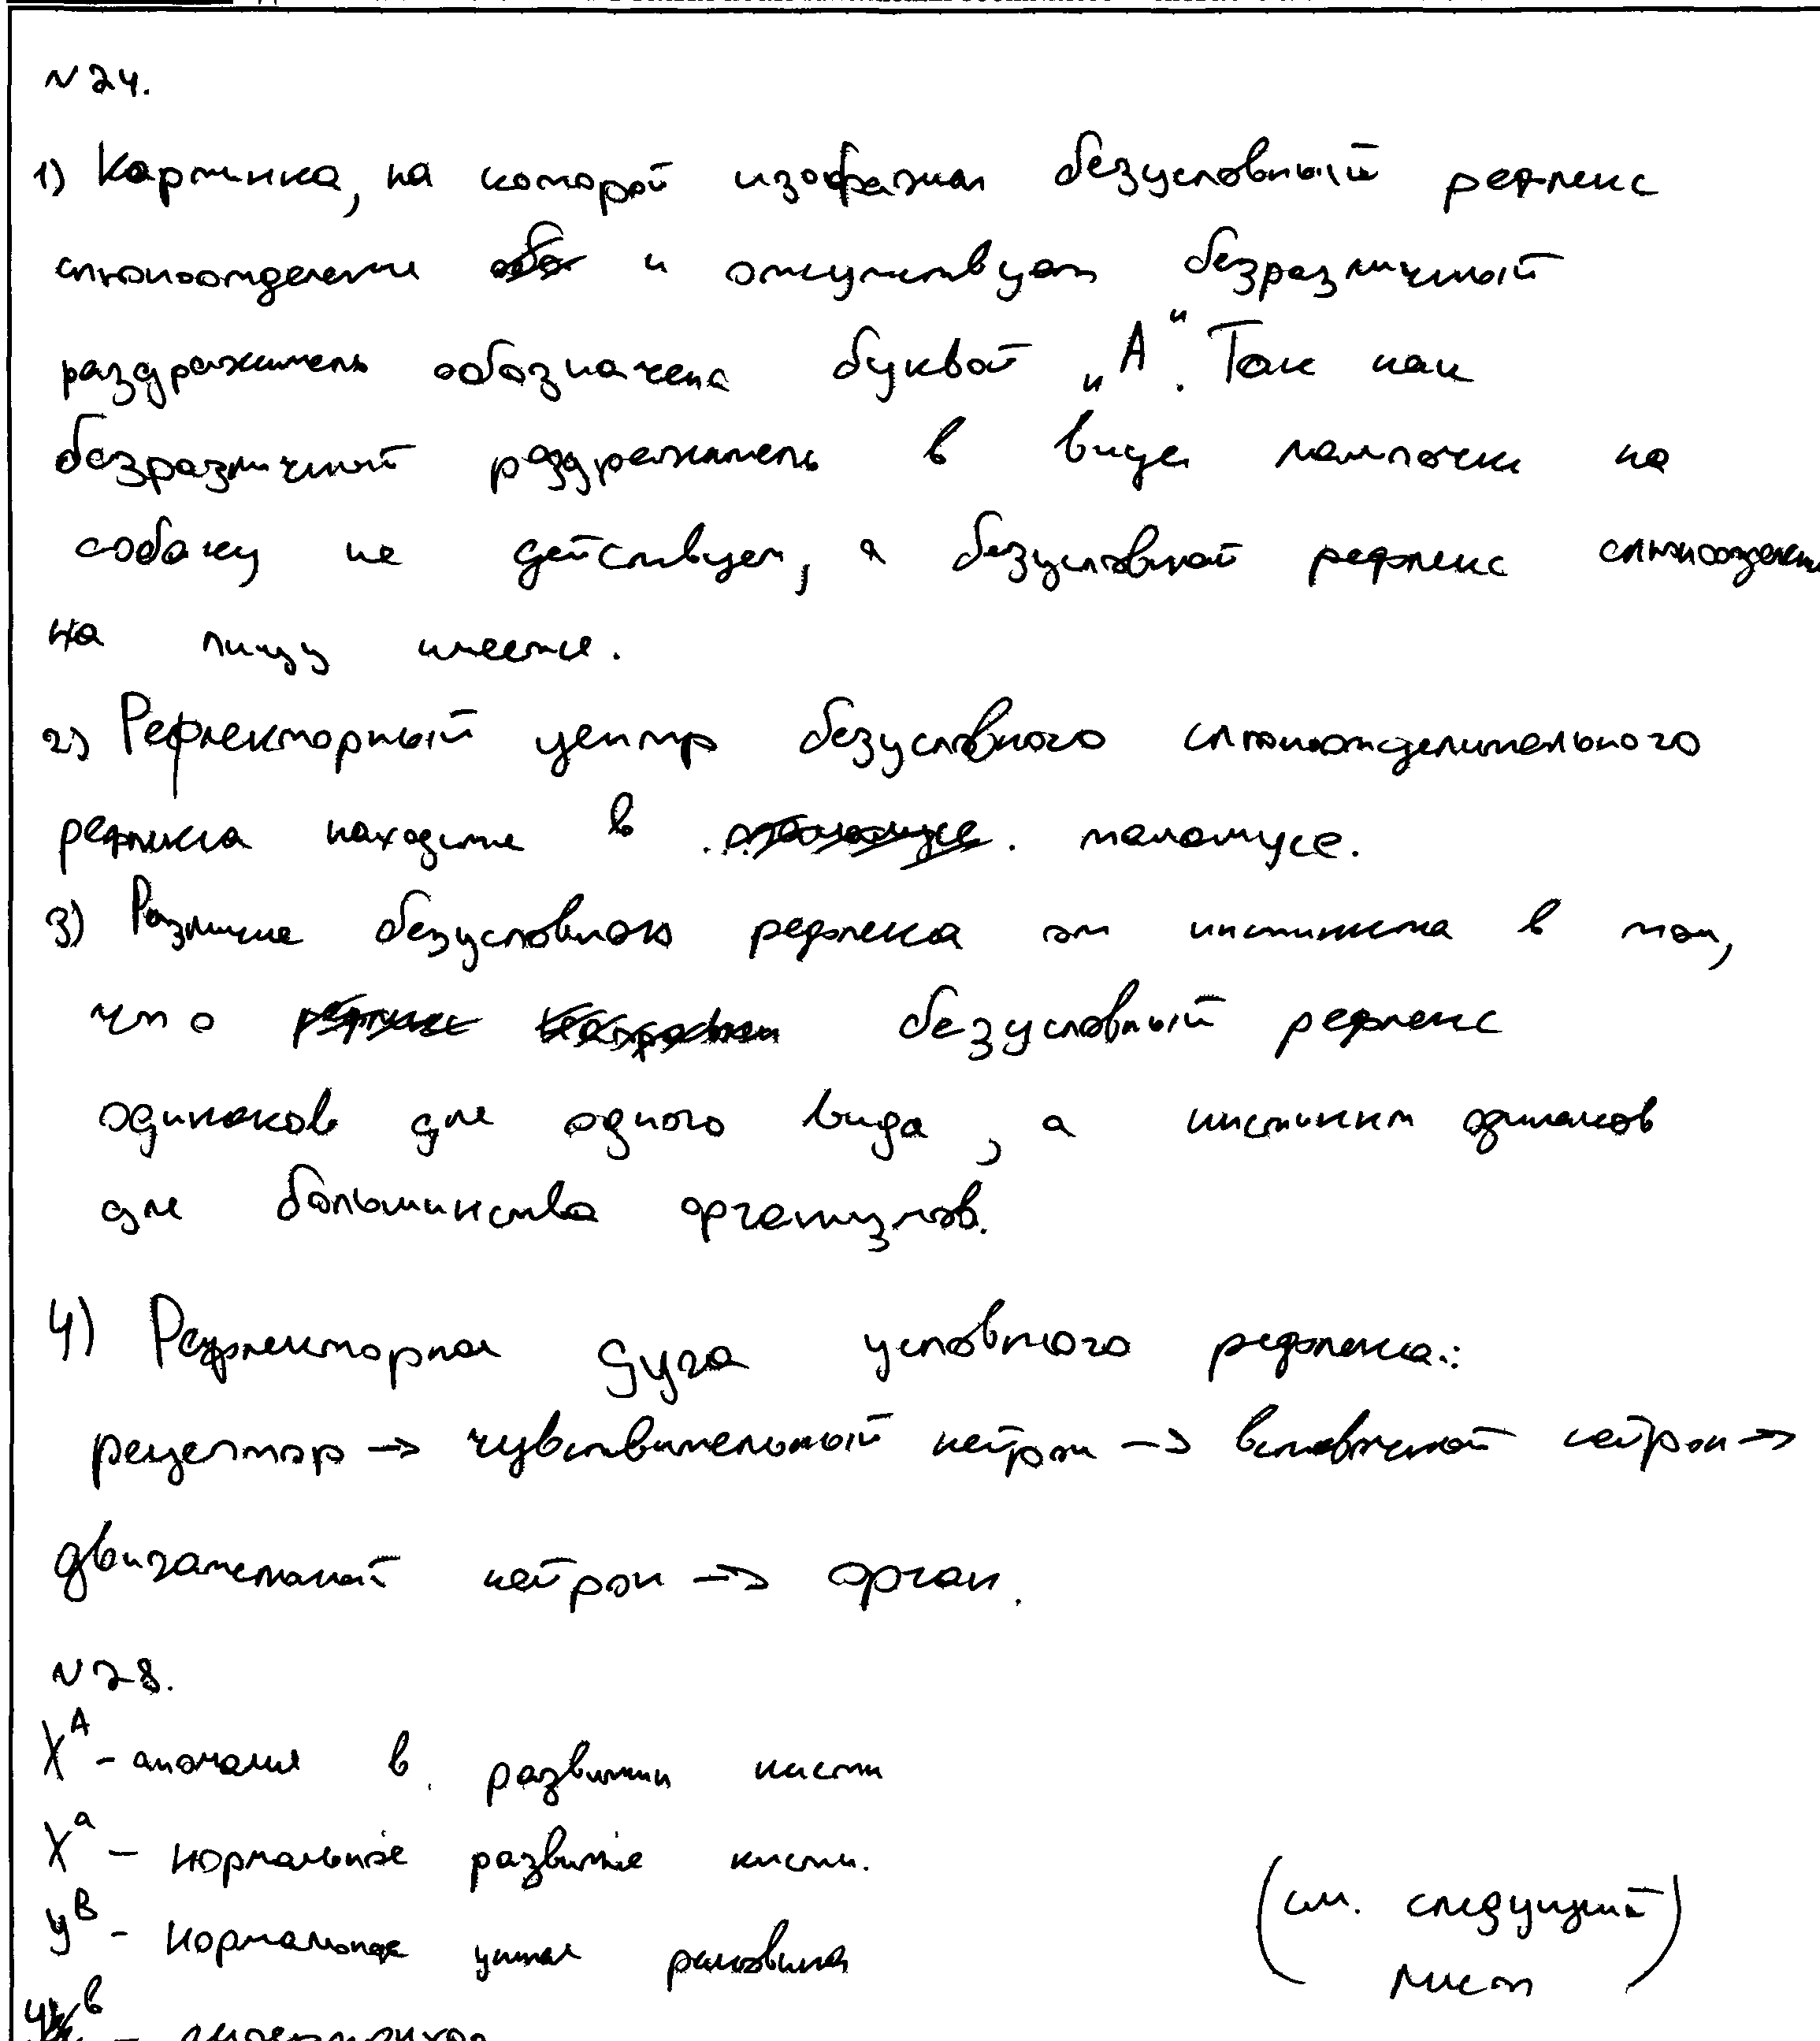 N 24.
1) Картинка, на которой изображен безусловный рефлекс
слюноотделение и отсутствует безразличный
раздражитель обозначена буквой „А". Так как
безразличный раздражитель в виде лампочки на
собаку не действует, а безусловный рефлекс
на пищу имеется.
2) Рефлекторный центр безусловного слюноотделительного
рефлекса находится в таламусе.
3) Различие безусловного рефлекса от инстинкта в том,
что безусловный рефлекс
одинаков для одного вида, а инстинкт одинаков
для большинства организмов.
4) Рефлекторная дуга условного рефлекса:
рецептор → чувствительный нейрон → вставочный нейрон →
двигательный нейрон → орган.
N 28.
X^A - аномалия в развитии кисти
X^a - нормальное развитие кисти.
y^B - нормальная ушная раковина
(см. следующий
лист)